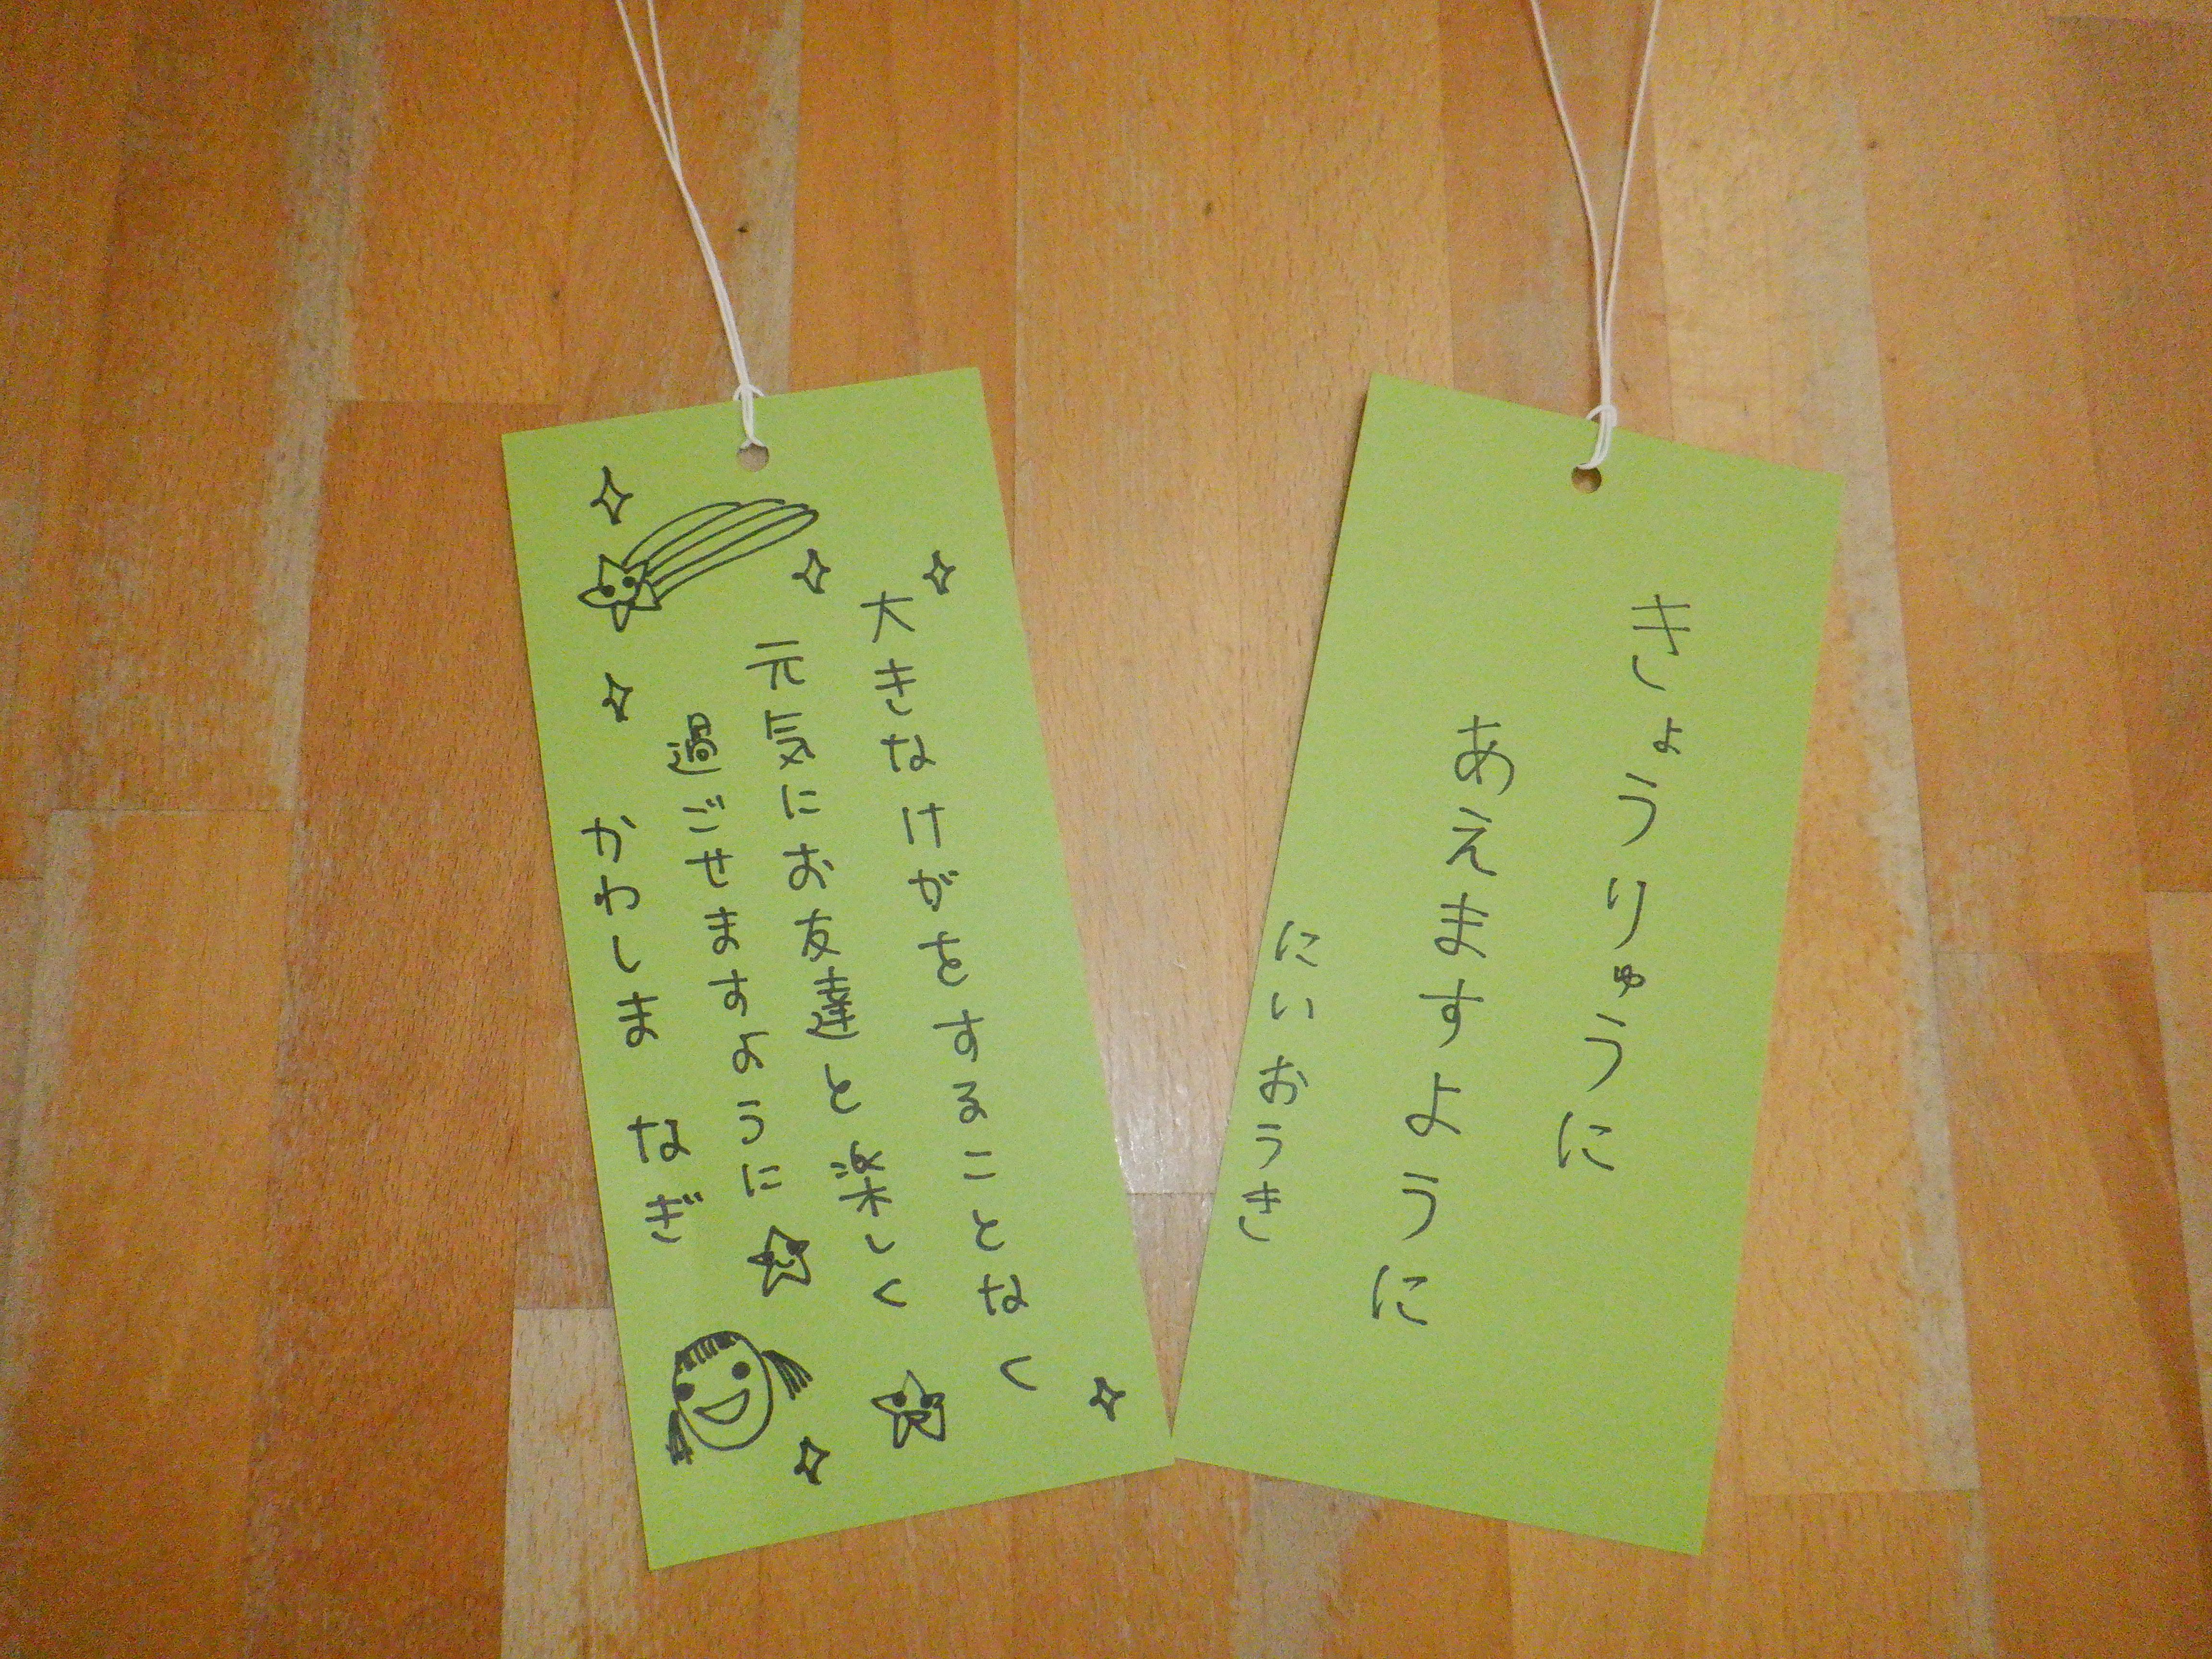 大きなけがをすることなく
元気にお友達と楽しく
過ごせますように
かわしま なぎ
きょうりゅうに
あえますように
にいおうき